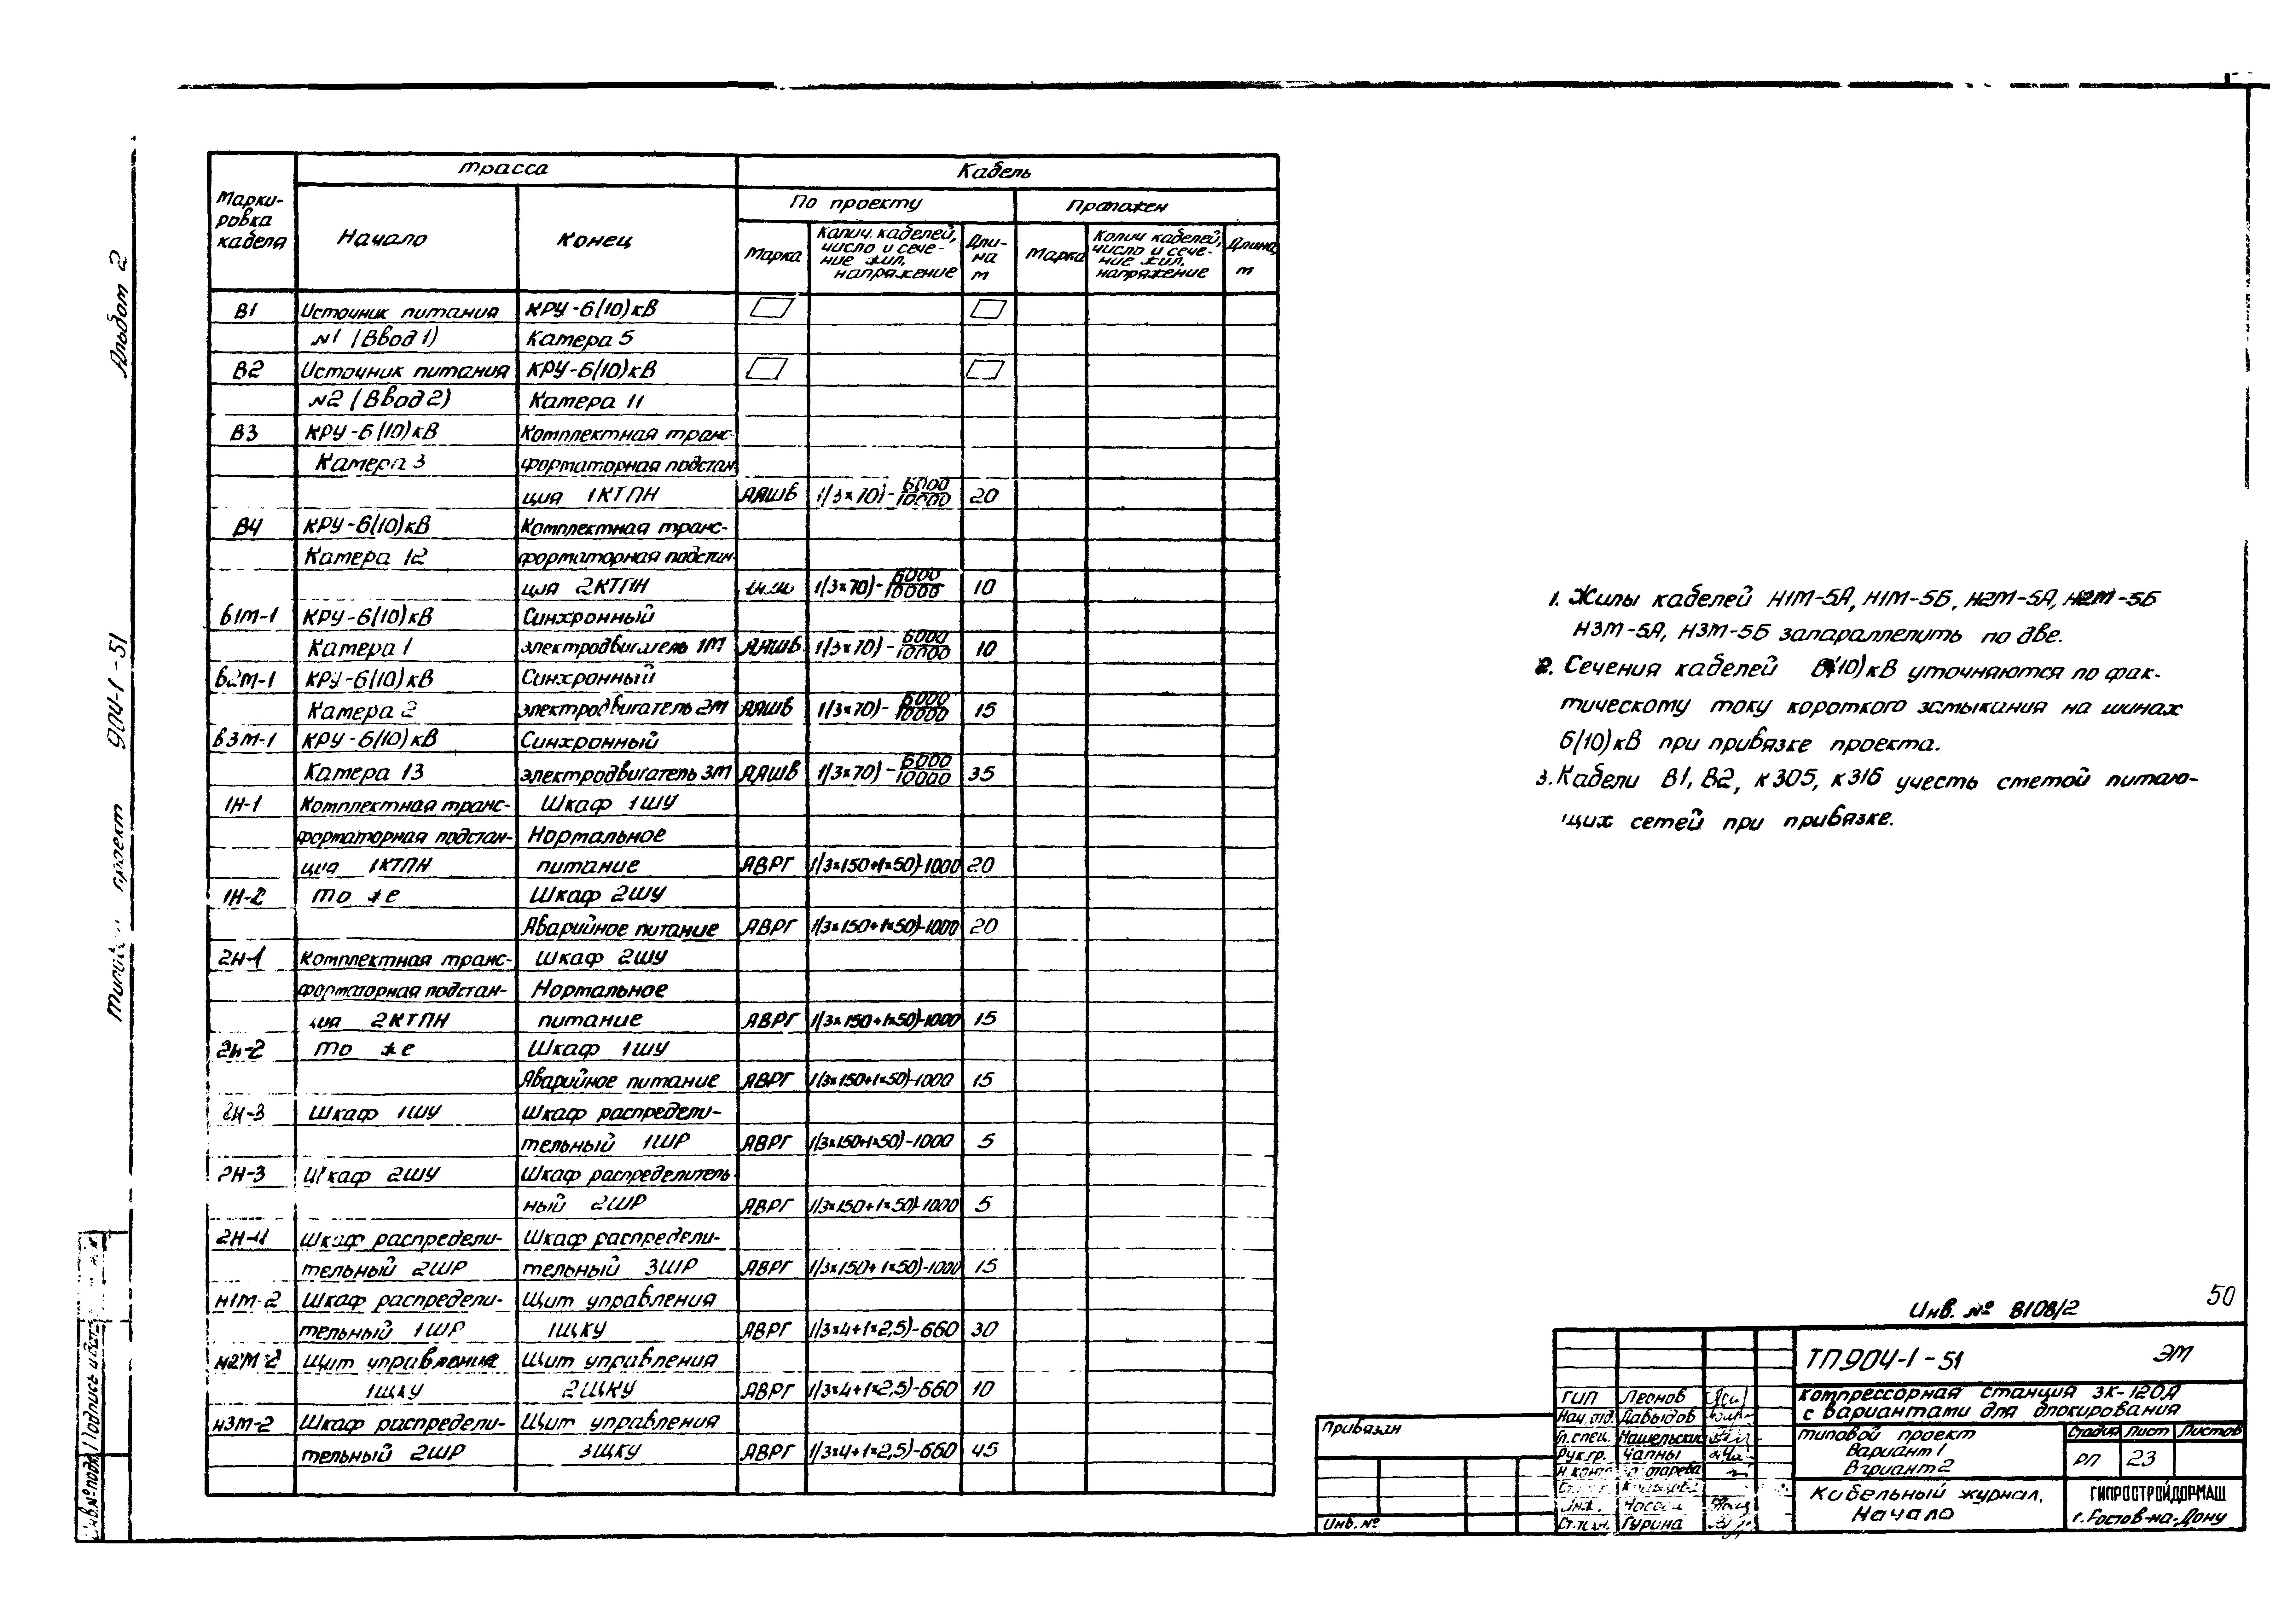 Альбом 2
Типовой проект 904-1-51
Марки-
ровка
кабеля
Трасса
Кабель
Начало
Конец
По проекту
Проложен
Марка
Колич. кабелей,
число и сече-
ние жил,
напряжение
Дли-
на
м
Марка
Колич кабелей,
число и сече-
ние жил,
напряжение
Длина,
м
В1 Источник питания КРУ-6(10)кВ
№1 (Ввод 1) Камера 5
В2 Источник питания КРУ-6(10)кВ
№2 (Ввод 2) Камера 11
В3 КРУ-6(10)кВ Комплектная транс-
Камера 3 форматорная подстан
ция 1КТПН ААШВ 1(3×70)-6000/10000 20
В4 КРУ-6(10)кВ Комплектная транс-
Камера 12 форматорная подстан-
ция 2КТПН 1(3×70)-6000/10000 10
В1М-1 КРУ-6(10)кВ Синхронный
Камера 1 электродвигатель 1М ААШВ 1(3×70)-6000/10000 10
В2М-1 КРУ-6(10)кВ Синхронный
Камера 2 электродвигатель 2М ААШВ 1(3×70)-6000/10000 15
В3М-1 КРУ-6(10)кВ Синхронный
Камера 13 электродвигатель 3М ААШВ 1(3×70)-6000/10000 35
1Н-1 Комплектная транс- Шкаф 1ШУ
форматорная подстан- Нормальное
ция 1КТПН питание АВРГ 1(3×150+1×50)-1000 20
1Н-2 То же Шкаф 2ШУ
Аварийное питание АВРГ 1(3×150+1×50)-1000 20
2Н-1 Комплектная транс- Шкаф 2ШУ
форматорная подстан- Нормальное
ция 2КТПН питание АВРГ 1(3×150+1×50)-1000 15
2Н-2 То же Шкаф 1ШУ
Аварийное питание АВРГ 1(3×150+1×50)-1000 15
Н-3 Шкаф 1ШУ Шкаф распредели-
тельный 1ШР АВРГ 1(3×150+1×50)-1000 5
2Н-3 Шкаф 2ШУ Шкаф распределитель-
ный 2ШР АВРГ 1(3×150+1×50)-1000 5
2Н-4 Шкаф распредели- Шкаф распредели-
тельный 2ШР тельный 3ШР АВРГ 1(3×150+1×50)-1000 15
Н1М-2 Шкаф распредели- Щит управления
тельный 1ШР 1ЩКУ АВРГ 1(3×4+1×2,5)-660 30
Н2М-2 Щит управления Щит управления
1ЩКУ 2ЩКУ АВРГ 1(3×4+1×2,5)-660 10
Н3М-2 Шкаф распредели- Щит управления
тельный 2ШР 3ЩКУ АВРГ 1(3×4+1×2,5)-660 45
1. Жилы кабелей Н1М-5А, Н1М-5Б, Н2М-5А, Н2М-5Б
Н3М-5А, Н3М-5Б запараллелить по две.
2. Сечения кабелей 6(10)кВ уточняются по фак-
тическому току короткого замыкания на шинах
6(10)кВ при привязке проекта.
3. Кабели В1, В2, К305, К316 учесть сметой питаю-
щих сетей при привязке.
Инв. № 8108/2
50
ТП904-1-51 ЭМ
компрессорная станция 3К-120А
с вариантами для блокирования
типовой проект
Вариант 1
Вариант 2
Стадия Лист Листов
РП 23
Кабельный журнал.
Начало
ГИПРОСТРОЙДОРМАШ
г. Ростов-на-Дону
ГИП Леонов
Нач. отд. Давыдов
Гл. спец. Нашельский
Рук. гр. Чапны
Н. контр
Инж.
Ст. техн. Гурина
Привязан
Инв. №
Инв. № подл. Подпись и дата